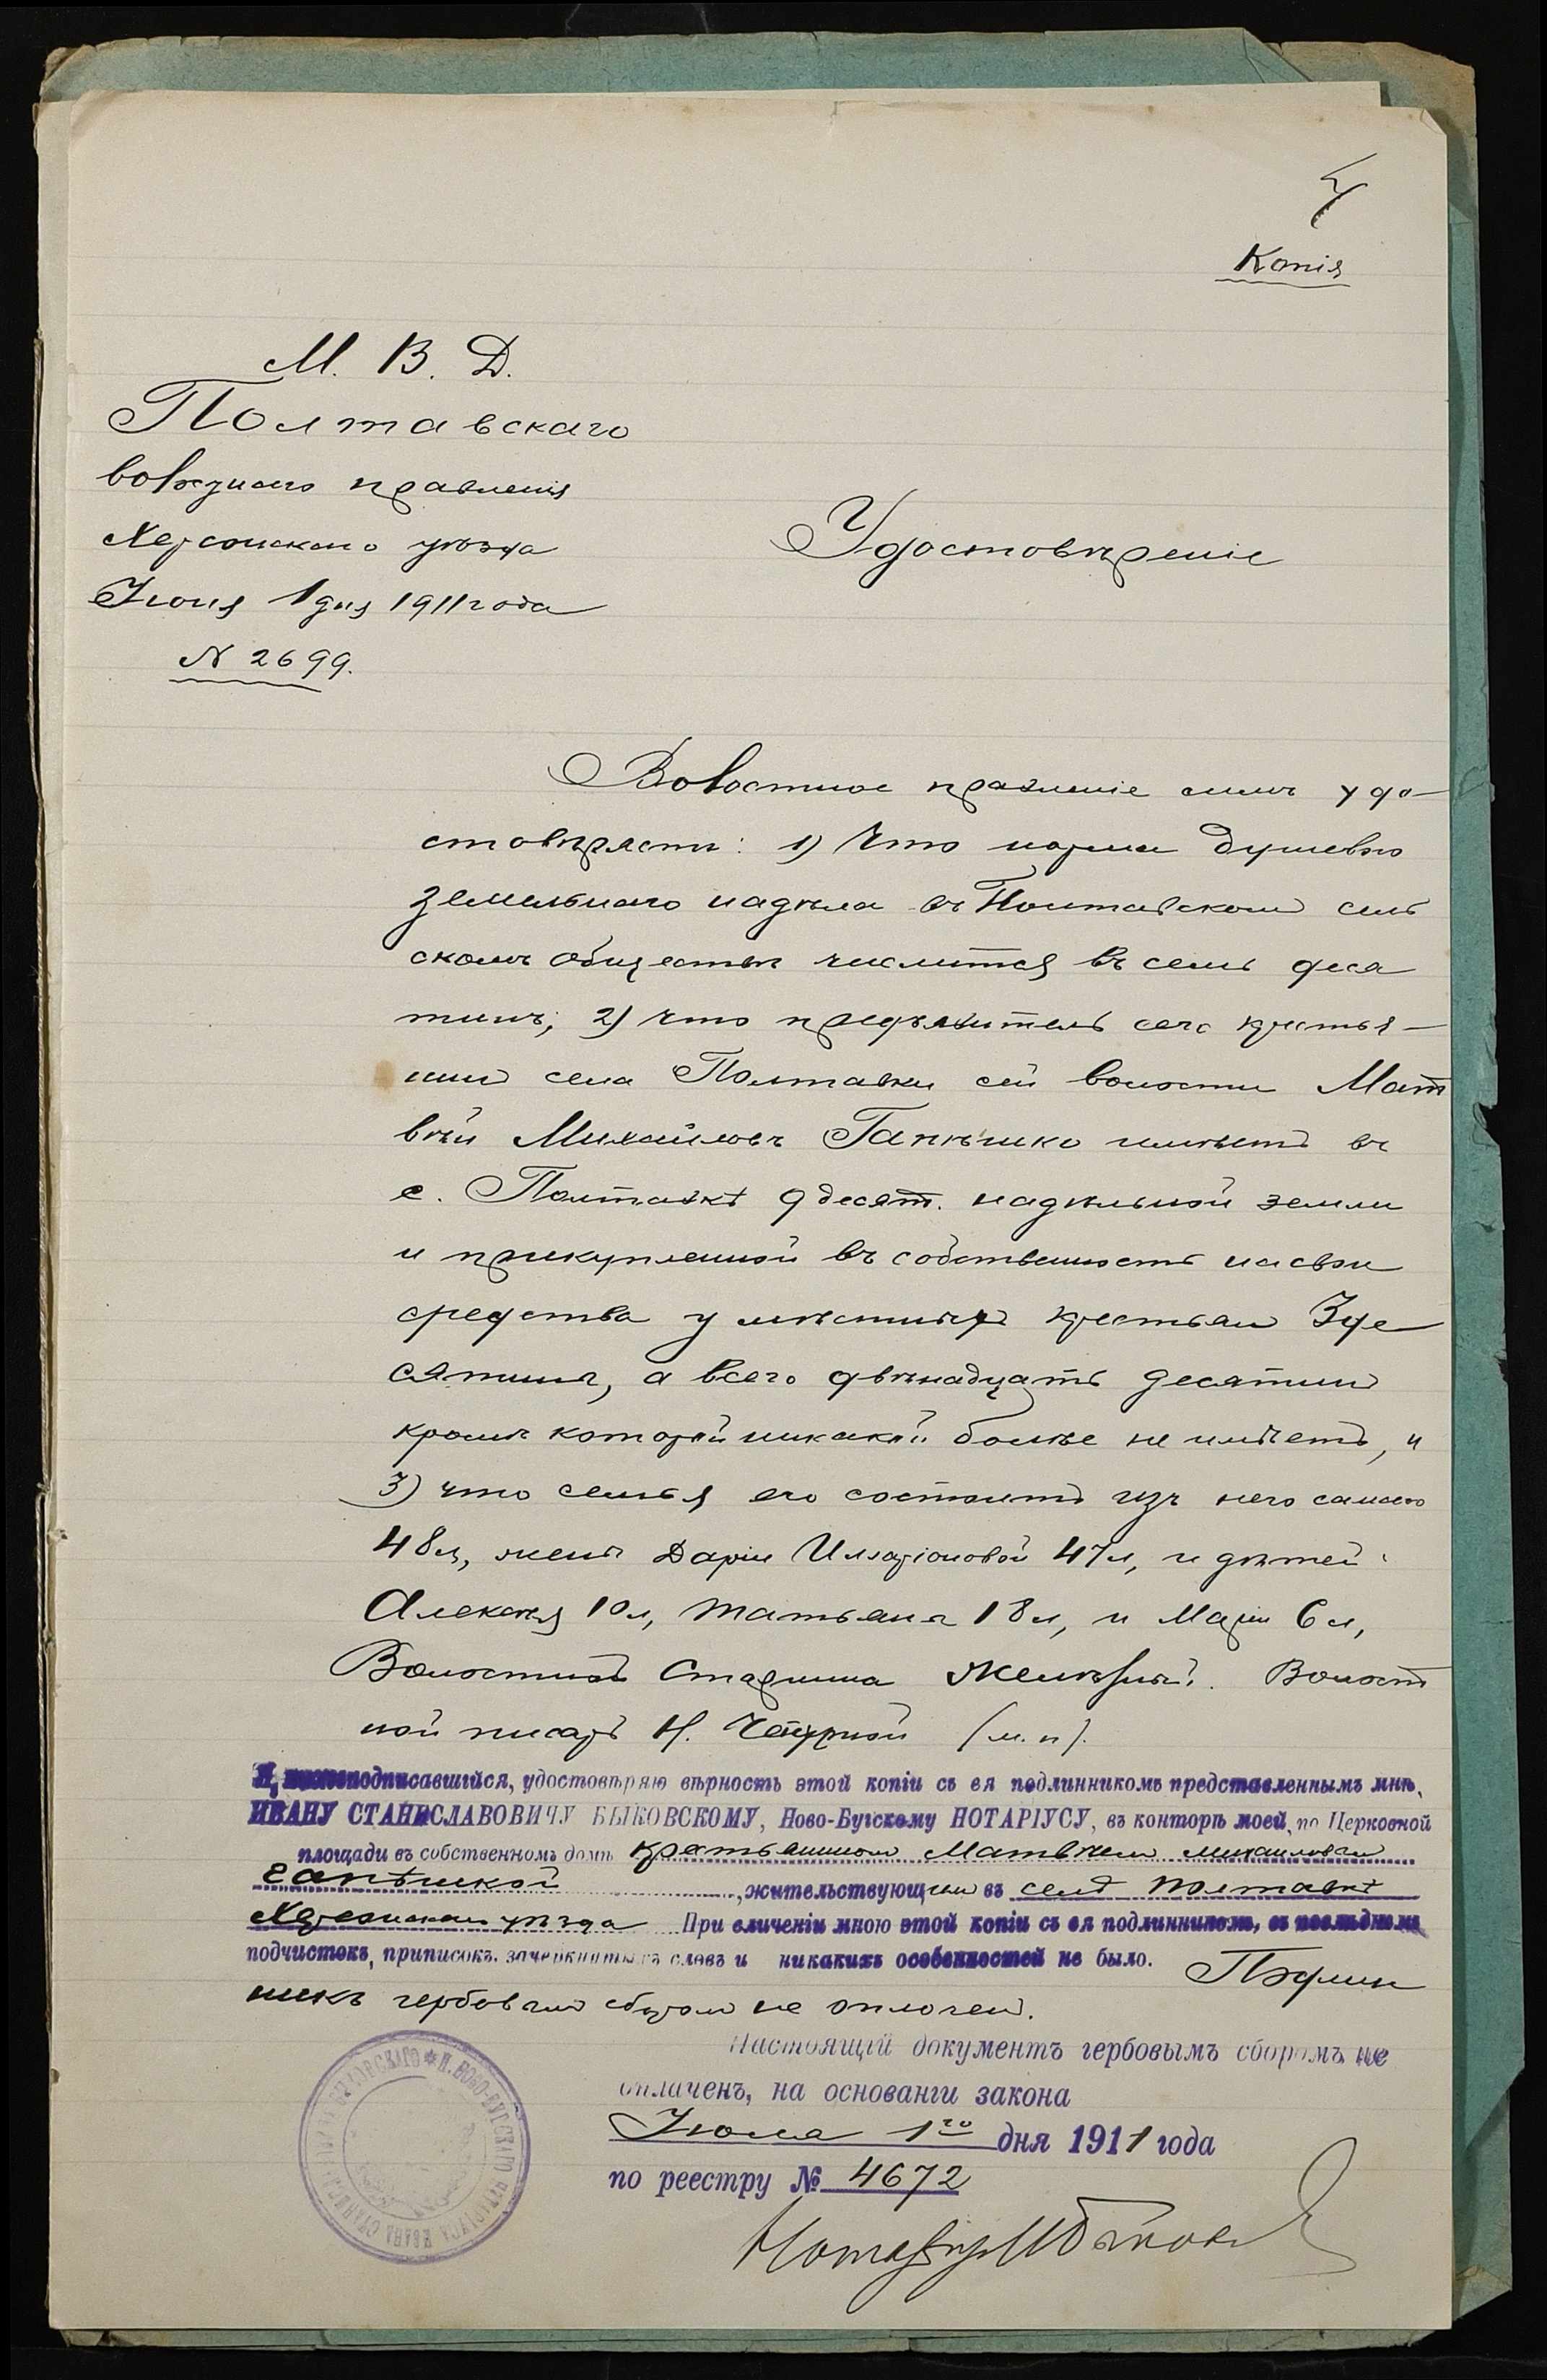 4
Копія
М. В. Д.
Полтавскаго
волостного правленія
Херсонскаго уѣзда
Іюня 1 дня 1911 года
№ 2699.
Удостовѣреніе
Волостное правленіе симъ удо-
стовѣряетъ: 1) Что норма душевого
земельнаго надѣла въ Полтавскомъ сель
скомъ обществѣ числится въ семь деся
тинъ; 2) что предъявитель сего крестья-
нин села Полтавки сей волости Мат
вѣй Михайловъ Гапѣшко имѣетъ въ
с. Полтавкѣ 9 десят. надѣльной земли
и прикупленной въ собственность на свои
средства у мѣстныхъ крестьян 3 де
сятины, а всего двѣнадцать десятин
кромѣ которой никакой болѣе не имѣетъ, и
3) что семья его состоитъ изъ него самого
48 л, жены Даріи Иларіоновой 47 л, и дѣтей:
Алексѣя 10 л, Татьяна 18 л, и Маріи 6 л,
Волостной Старшина Волост
ной писарь Н. (м. п.).
Я, нижеподписавшійся, удостовѣряю вѣрность этой копіи съ ея подлинникомъ представленнымъ мнѣ,
ИВАНУ СТАНИСЛАВОВИЧУ БЫКОВСКОМУ, Ново-Бугскому НОТАРІУСУ, въ конторѣ моей, по Церковной
площади въ собственномъ домѣ крестьянином Матвѣем Михаиловым
Гапѣшкой, жительствующим въ селѣ Полтавкѣ
Херсонскаго уѣзда При сличеніи мною этой копіи съ ея подлинникомъ, въ послѣднемъ
подчистокъ, приписокъ, зачеркнутыхъ словъ и никакихъ особенностей не было. Подлин
никъ гербовым сбором не оплочен.
Настоящій документъ гербовымъ сборомъ не
оплаченъ, на основаніи закона
Іюля 1го дня 1911 года
по реестру № 4672
Нотаріус И Быковск